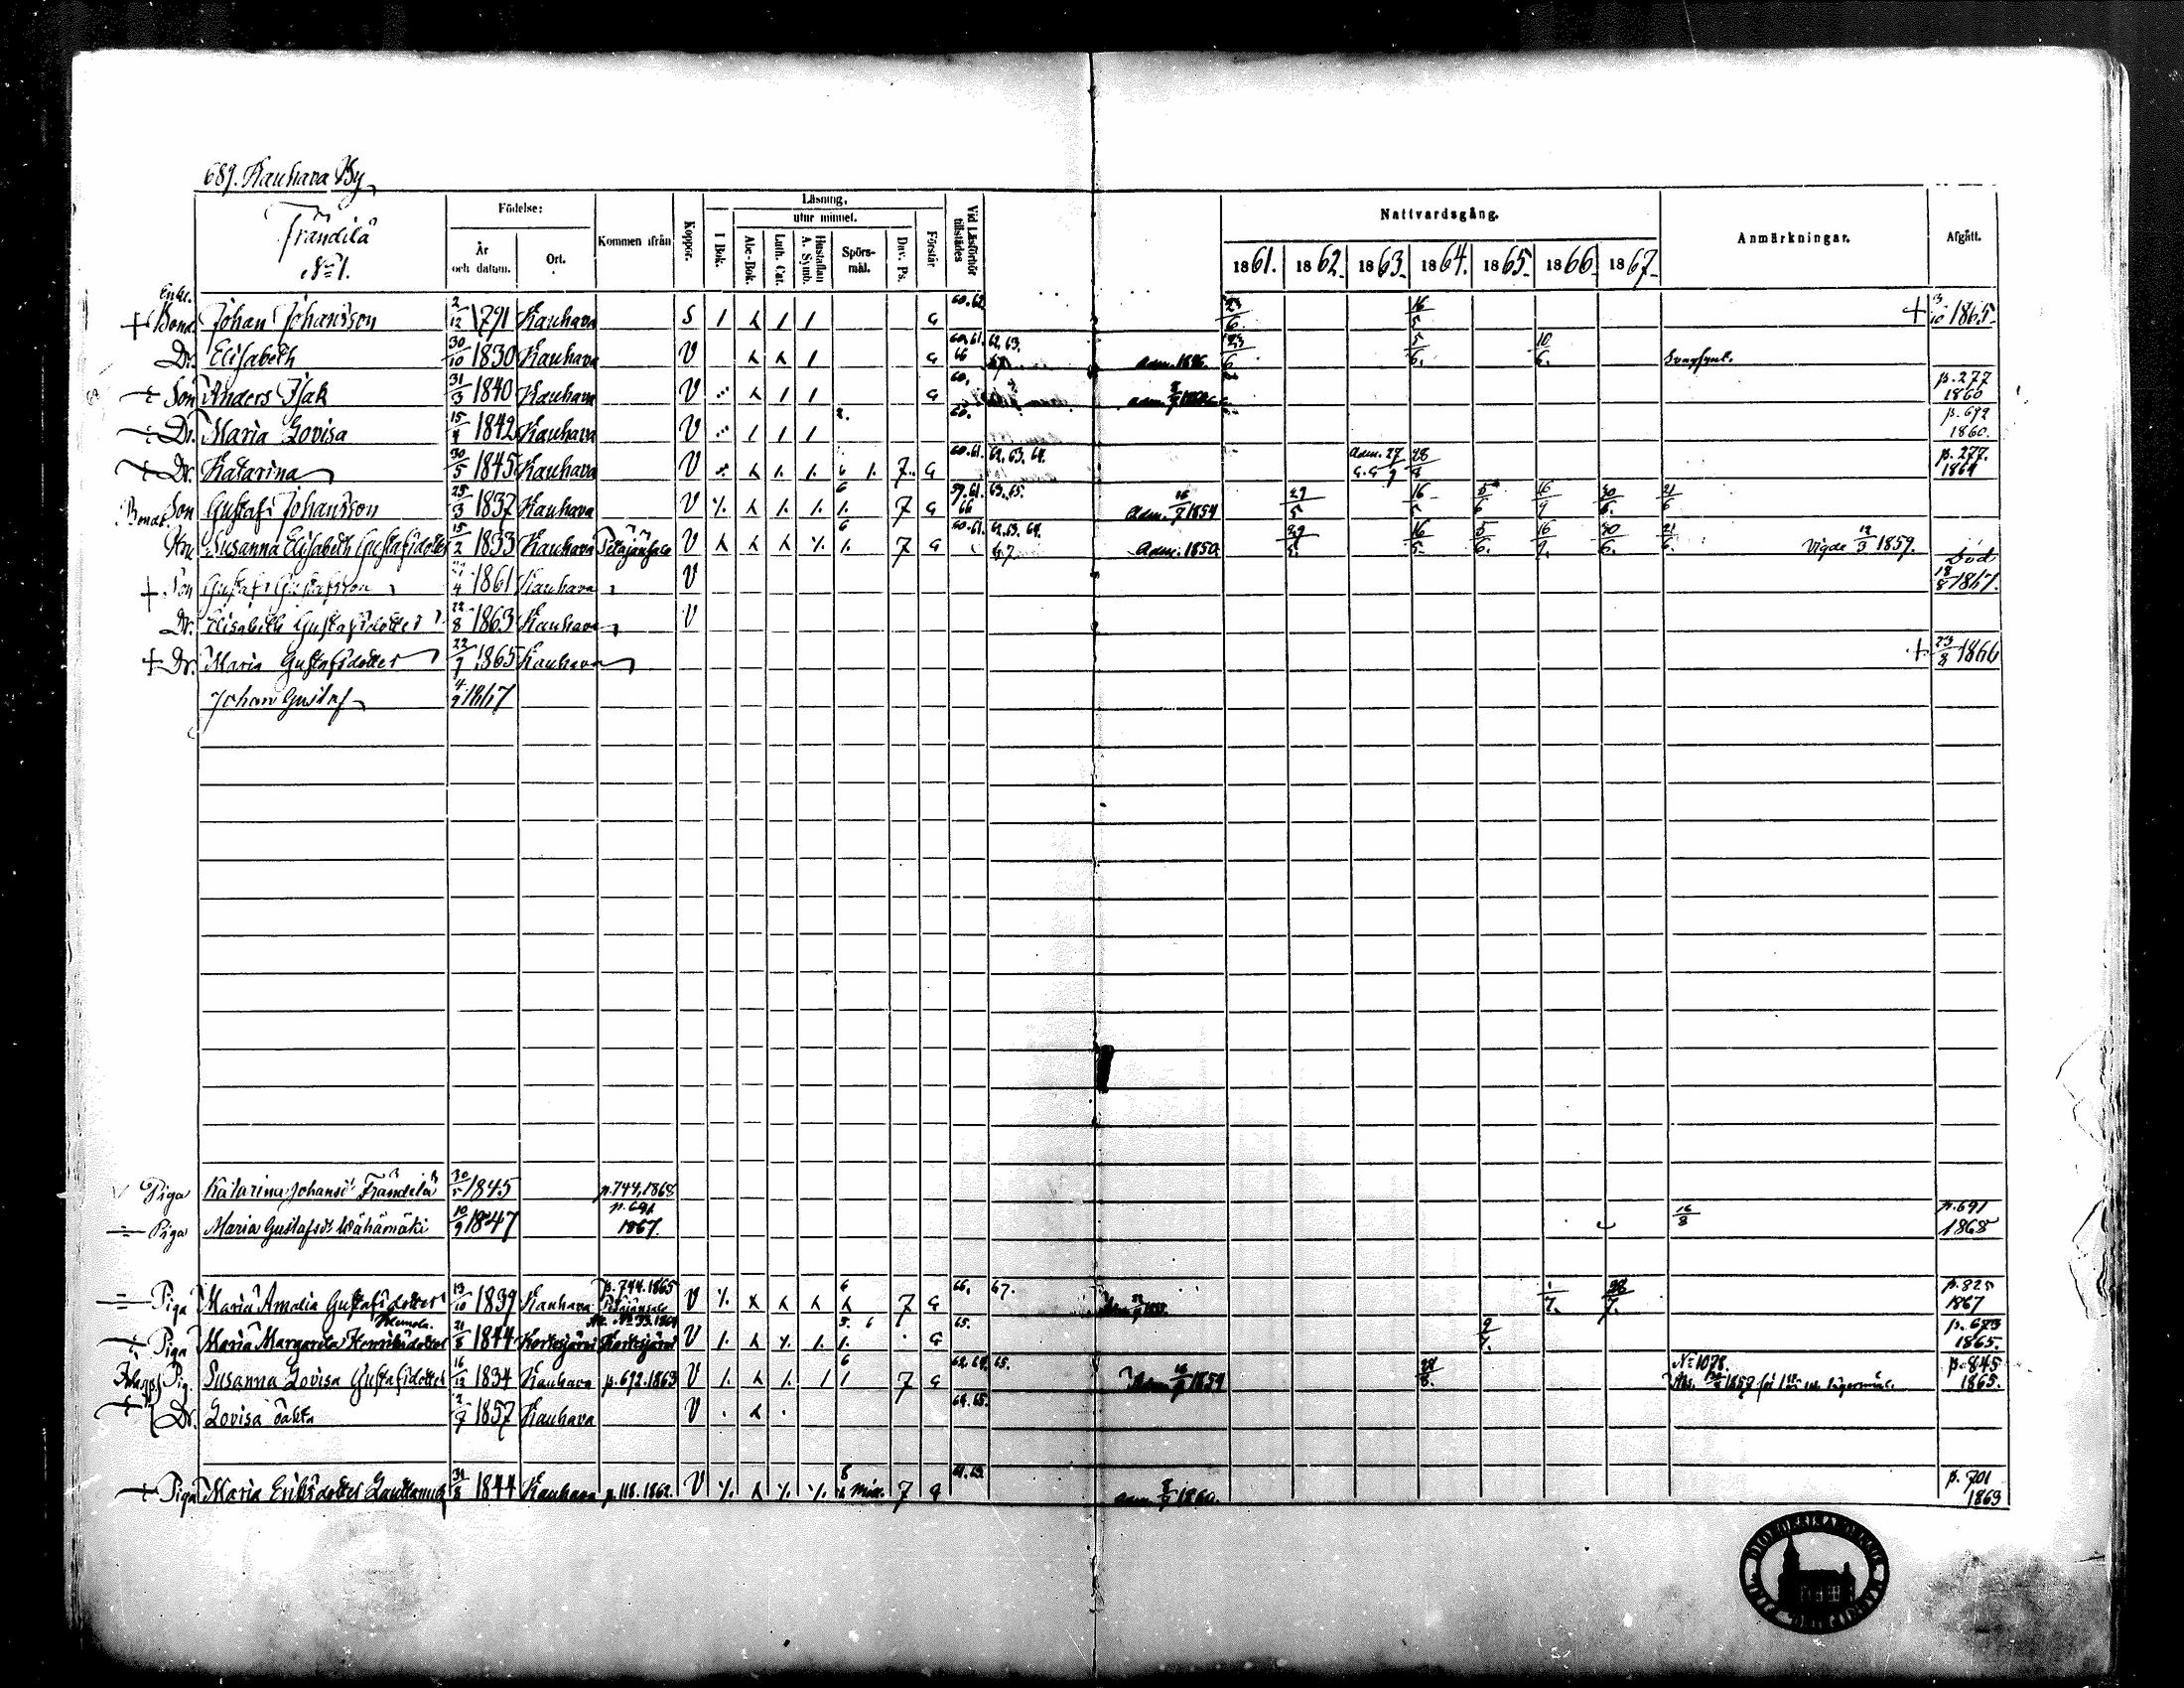 689. Kauhava By
Frändilä
No 1.
Födelse:
År och datum.
Ort.
Kommen ifrån
Koppor.
Läsning,
I Bok.
utur minnet.
Abc-Bok.
Luth. Cat.
Hustaflan A. Symb.
Spörsmål.
Dav. Ps.
Förstår
Vid Läsförhör tillstädes
Nattvardsgång.
1861. 1862. 1863. 1864. 1865. 1866. 1867.
Anmärkningar.
Afgått.
Enkl.
+ Bond. Johan Johansson 2/12 1791 Kauhava S G 60.62 23/6 16/5 + 13/10 1865
Dr. Elisabeth 30/10 1830 Kauhava V G 60.61. 66 62.63. 67. 23/6 5/6. 10/6.
Son Anders Isak 31/3 1840 Kauhava V G 60. p.277 1860
Dr. Maria Lovisa 15/4 1842 Kauhava V 60. p.692 1860.
Dr. Katarina 30/5 1845 Kauhava V 7. G 60.61. 62.63.64. Adm. 27 28/8 p.277. 1864
Bonde Son Gustaf Johansson 25/3 1837 Kauhava V 6 7 G 59.61. 66 63.65. Adm. 16/7 1854 29/5 16/5 5/6 16/9 30/6. 21/6
Hu Susanna Elisabeth Gustafsdotter 15/2 1833 Kauhava Petäjänsalo V 6 7 G 60.61. 62.63.64. 67. Adm. 1850. 29/5. 16/5. 5/6. 16/9. 30/6. 21/6. Vigde 13/3 1859.
+ Son Gustaf Gustafsson 4 1861 Kauhava V Död 18/8 1867.
Dr. Elisabeth Gustafsdotter 22/8 1863 Kauhava V
+ Dr. Maria Gustafsdotter 22/7 1865 Kauhava + 23/8 1866
Johan Gustaf 4/9 1867
Piga Katarina Johansd:r Frändelä 30/5 1845 p.744, 1868
Piga Maria Gustafsd:r Wähämäki 10/9 1847 p.691 1867. 16/8 p.691 1868
Piga Maria Amalia Gustafsdotter 13/10 1839 Kauhava p.744.1865 Petäjänsalo V 6 7 G 66. 67. 1/7. 28/7. p.825 1867
Piga Maria Margareta Henriksdotter 21/8 1844 Kortesjärvi Kortesjärvi V 5. 6 G 65. 9/7. p.673 1865.
Pig. Susanna Lovisa Gustafsdotter 16/12 1834 Kauhava p.692.1863 V 6 7 G 62.64. 65. Adm. 16/7 1854 28/8. No 1078. p.845 1865.
Dr. Lovisa oäkta 2/9 1857 Kauhava V 64.65.
Piga Maria Eriksdotter Lauttamus 31/8 1844 Kauhava p.118.1862. V 7 G Adm. 8/7 1860. p.701 1863